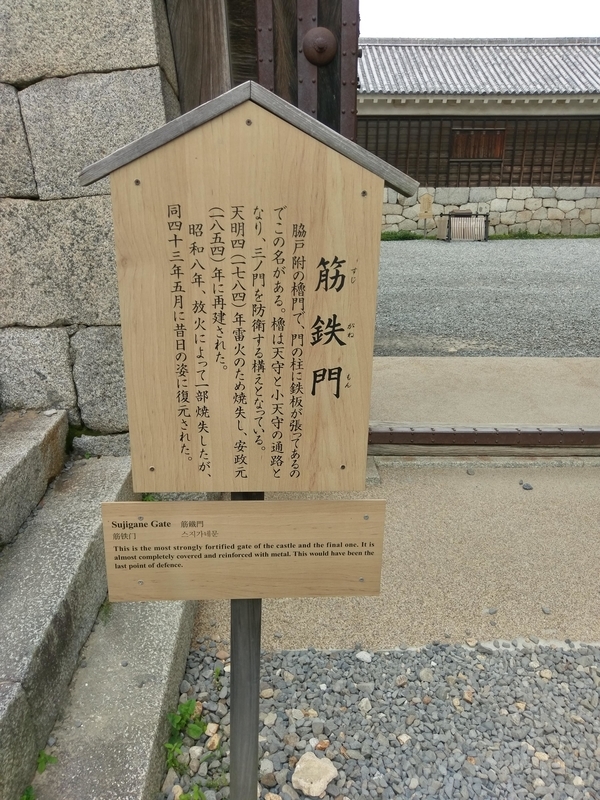 筋鉄門
すじがねもん
脇戸附の櫓門で、門の柱に鉄板が張ってあるの
でこの名がある。櫓は天守と小天守の通路と
なり、三ノ門を防衛する構えとなっている。
天明四(一七八四)年雷火のため焼失し、安政元
(一八五四)年に再建された。
昭和八年、放火によって一部焼失したが、
同四十三年五月に昔日の姿に復元された。
Sujigane Gate 筋鐵門
筋铁门 스지가네문
This is the most strongly fortified gate of the castle and the final one. It is
almost completely covered and reinforced with metal. This would have been the
last point of defence.